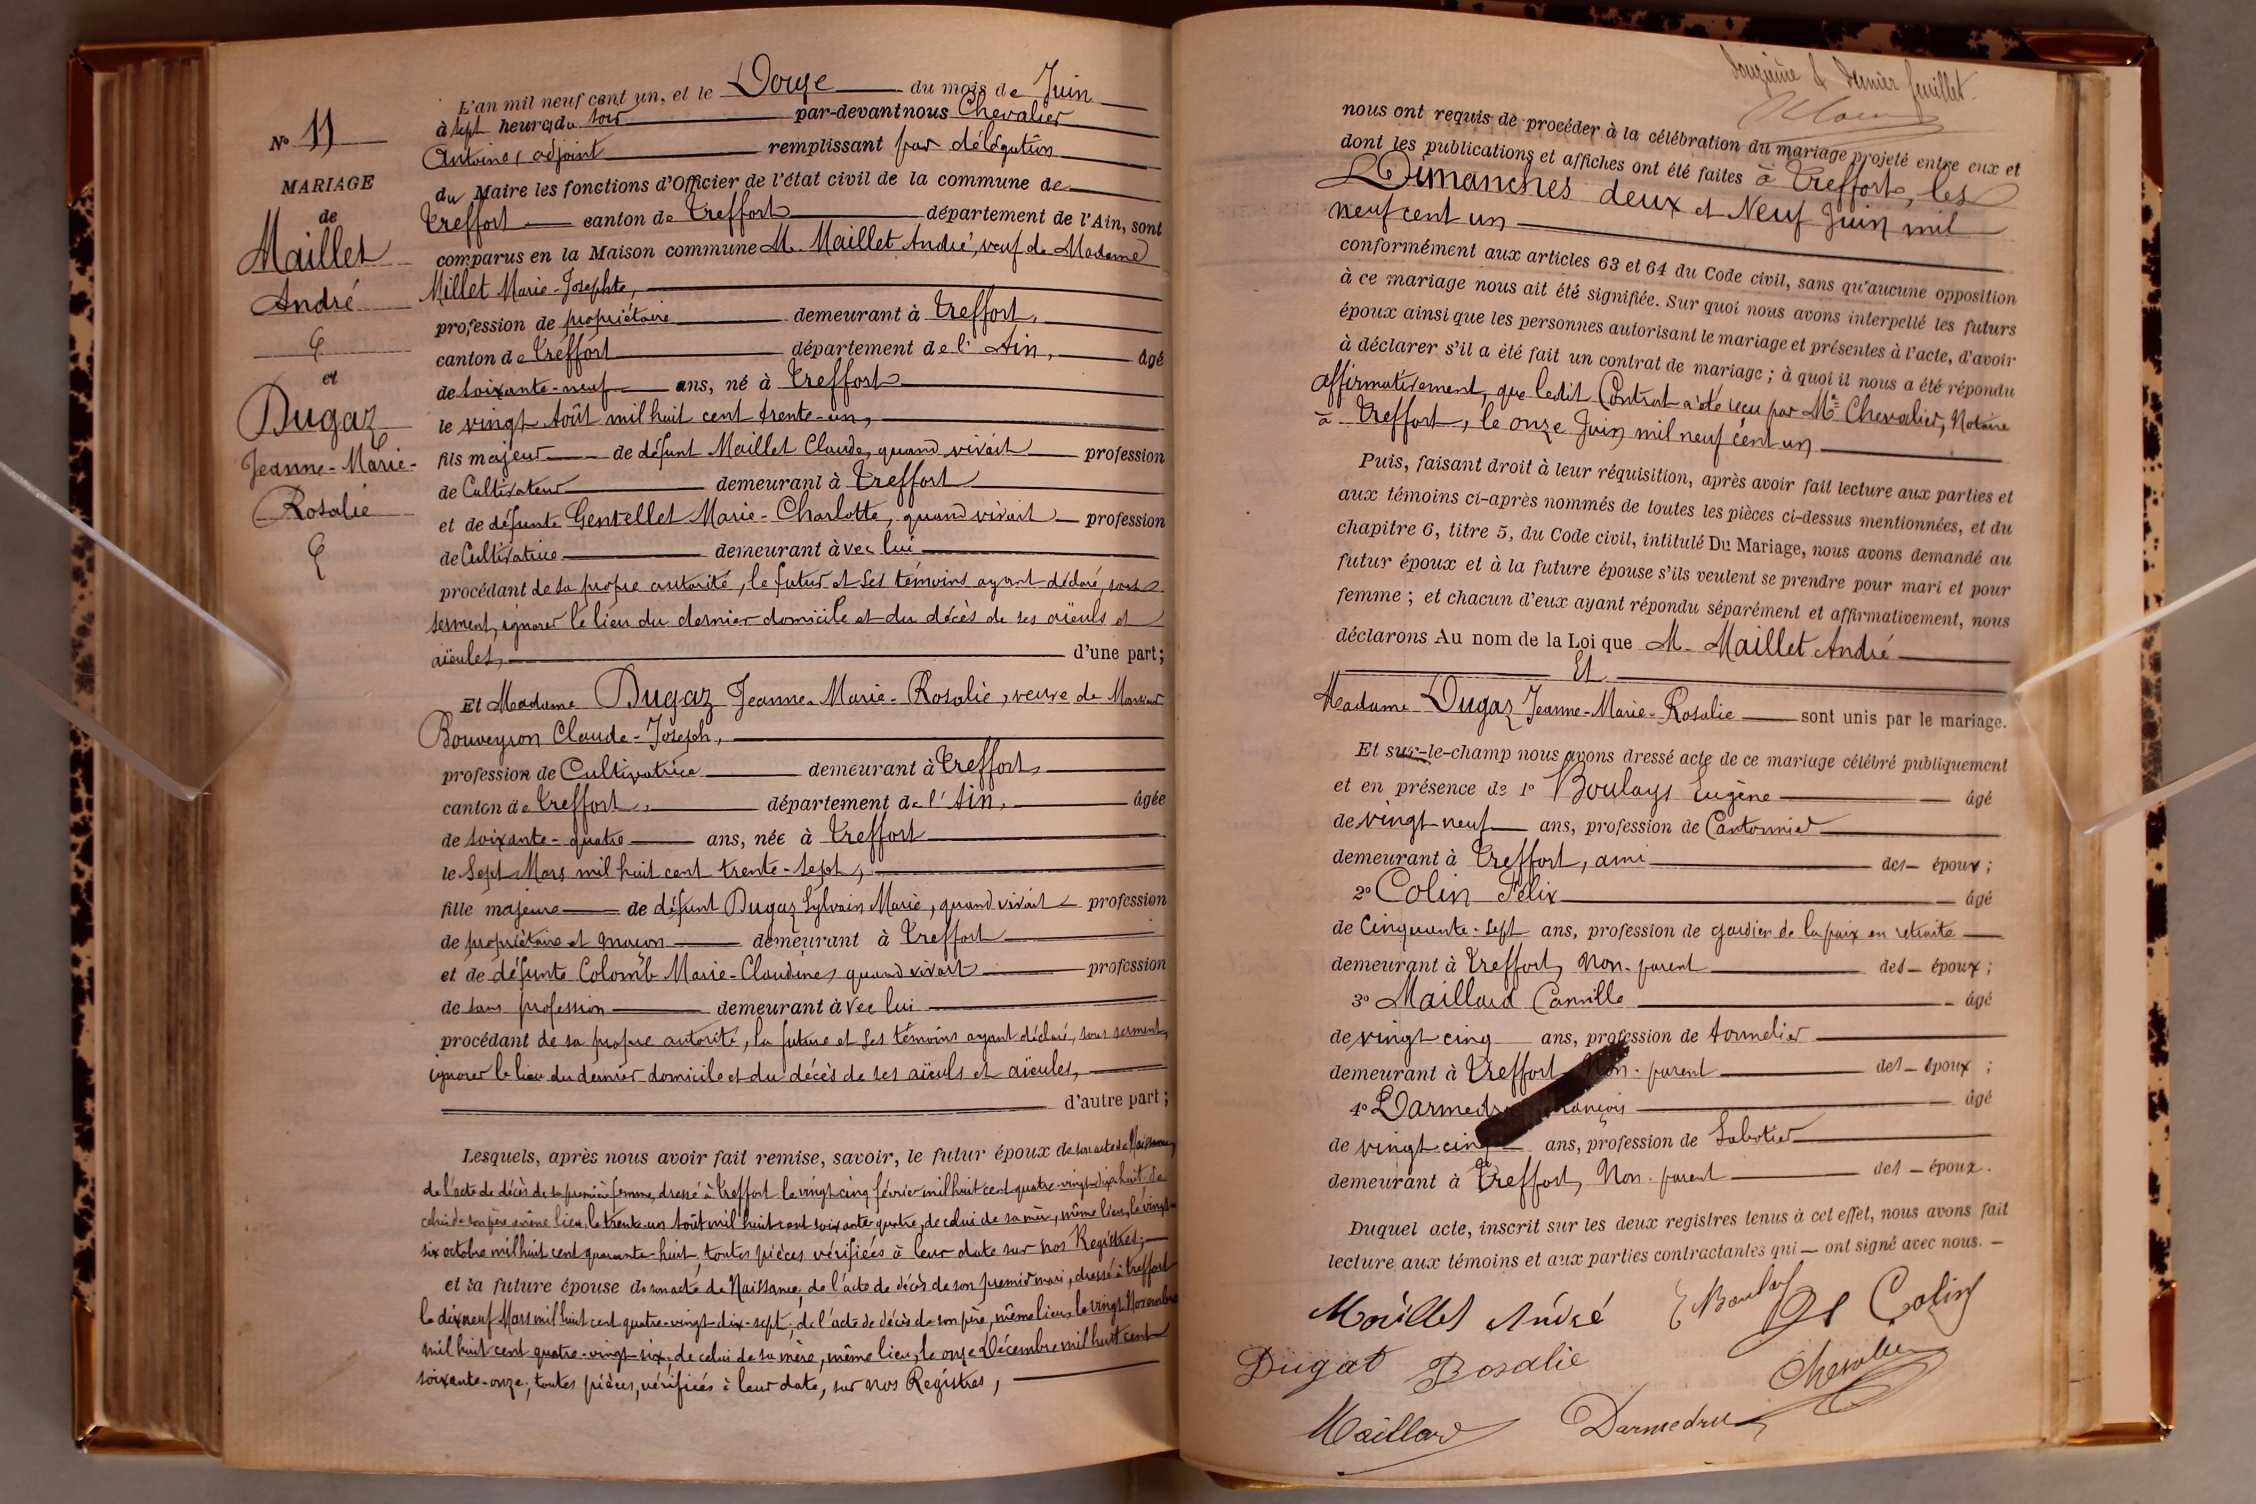 N° 11
MARIAGE
de
Maillet
André
et
Dugaz
Jeanne-Marie-
Rosalie
L'an mil neuf cent un, et le Douze du mois de Juin
à sept heures du soir par-devant nous Chevalier
Antoine, adjoint remplissant par délégation
du Maire les fonctions d'Officier de l'état civil de la commune de
Treffort canton de Treffort département de l'Ain, sont
comparus en la Maison commune M. Maillet André, veuf de Madame
Millet Marie-Josephte,
profession de propriétaire demeurant à Treffort,
canton de Treffort département de l'Ain, âgé
de soixante-neuf ans, né à Treffort
le vingt Août mil huit cent trente-un,
fils majeur de défunt Maillet Claude, quand vivait profession
de Cultivateur demeurant à Treffort
et de défunte Gentellet Marie-Charlotte, quand vivait profession
de Cultivatrice demeurant avec lui
procédant de sa propre autorité, le futur et ses témoins ayant déclaré, sous
serment, ignorer le lieu du dernier domicile et du décès de ses aïeuls et
aïeules, d'une part;
Et Madame Dugaz Jeanne-Marie-Rosalie, veuve de Monsieur
Bouveyron Claude-Joseph,
profession de Cultivatrice demeurant à Treffort,
canton de Treffort, département de l'Ain, âgée
de soixante-quatre ans, née à Treffort
le Sept Mars mil huit cent trente-sept,
fille majeure de défunt Dugaz Sylvain Marie, quand vivait profession
de propriétaire et maçon demeurant à Treffort
et de défunte Colomb Marie-Claudine, quand vivait profession
de sans profession demeurant avec lui
procédant de sa propre autorité, la future et ses témoins ayant déclaré, sous serment,
ignorer le lieu du dernier domicile et du décès de ses aïeuls et aïeules,
d'autre part;
Lesquels, après nous avoir fait remise, savoir, le futur époux de son acte de Naissance,
de l'acte de décès de sa première femme, dressé à Treffort le vingt cinq février mil huit cent quatre-vingt-dix-huit de
celui de son père, même lieu, le trente-un Août mil huit cent soixante quatre, de celui de sa mère, même lieu, le vingt-
six octobre mil huit cent quarante-huit, toutes pièces vérifiées à leur date sur nos Registres;
et la future épouse de son acte de Naissance, de l'acte de décès de son premier mari, dressé à Treffort
le dix neuf Mars mil huit cent quatre-vingt-dix-sept; de l'acte de décès de son père, même lieu, le vingt Novembre
mil huit cent quatre-vingt-six; de celui de sa mère, même lieu, le onze Décembre mil huit cent
soixante-onze; toutes pièces, vérifiées à leur date, sur nos Registres,
douzième & dernier feuillet.
nous ont requis de procéder à la célébration du mariage projeté entre eux et
dont les publications et affiches ont été faites à Treffort, les
Dimanches deux et Neuf Juin mil
neuf cent un
conformément aux articles 63 et 64 du Code civil, sans qu'aucune opposition
à ce mariage nous ait été signifiée. Sur quoi nous avons interpellé les futurs
époux ainsi que les personnes autorisant le mariage et présentes à l'acte, d'avoir
à déclarer s'il a été fait un contrat de mariage; à quoi il nous a été répondu
affirmativement, que ledit Contrat a été reçu par Me Chevalier, Notaire
à Treffort, le onze Juin mil neuf cent un
Puis, faisant droit à leur réquisition, après avoir fait lecture aux parties et
aux témoins ci-après nommés de toutes les pièces ci-dessus mentionnées, et du
chapitre 6, titre 5, du Code civil, intitulé Du Mariage, nous avons demandé au
futur époux et à la future épouse s'ils veulent se prendre pour mari et pour
femme; et chacun d'eux ayant répondu séparément et affirmativement, nous
déclarons Au nom de la Loi que M. Maillet André
Et
Madame Dugaz Jeanne-Marie-Rosalie sont unis par le mariage.
Et sur-le-champ nous avons dressé acte de ce mariage célébré publiquement
et en présence de 1° Boulays Eugène âgé
de vingt-neuf ans, profession de Cantonnier
demeurant à Treffort, ami des époux;
2° Colin Félix âgé
de Cinquante-sept ans, profession de gardien de la paix en retraite
demeurant à Treffort, Non-parent des époux;
3° Maillard Camille âgé
de vingt cinq ans, profession de tonnelier
demeurant à Treffort Non-parent des époux;
4° Darmedru François âgé
de vingt-cinq ans, profession de Sabotier
demeurant à Treffort, Non-parent des époux.
Duquel acte, inscrit sur les deux registres tenus à cet effet, nous avons fait
lecture aux témoins et aux parties contractantes qui ont signé avec nous.
Maillet André E Boulay Colin
Dugat Rosalie Chevalier
Maillard Darmedru